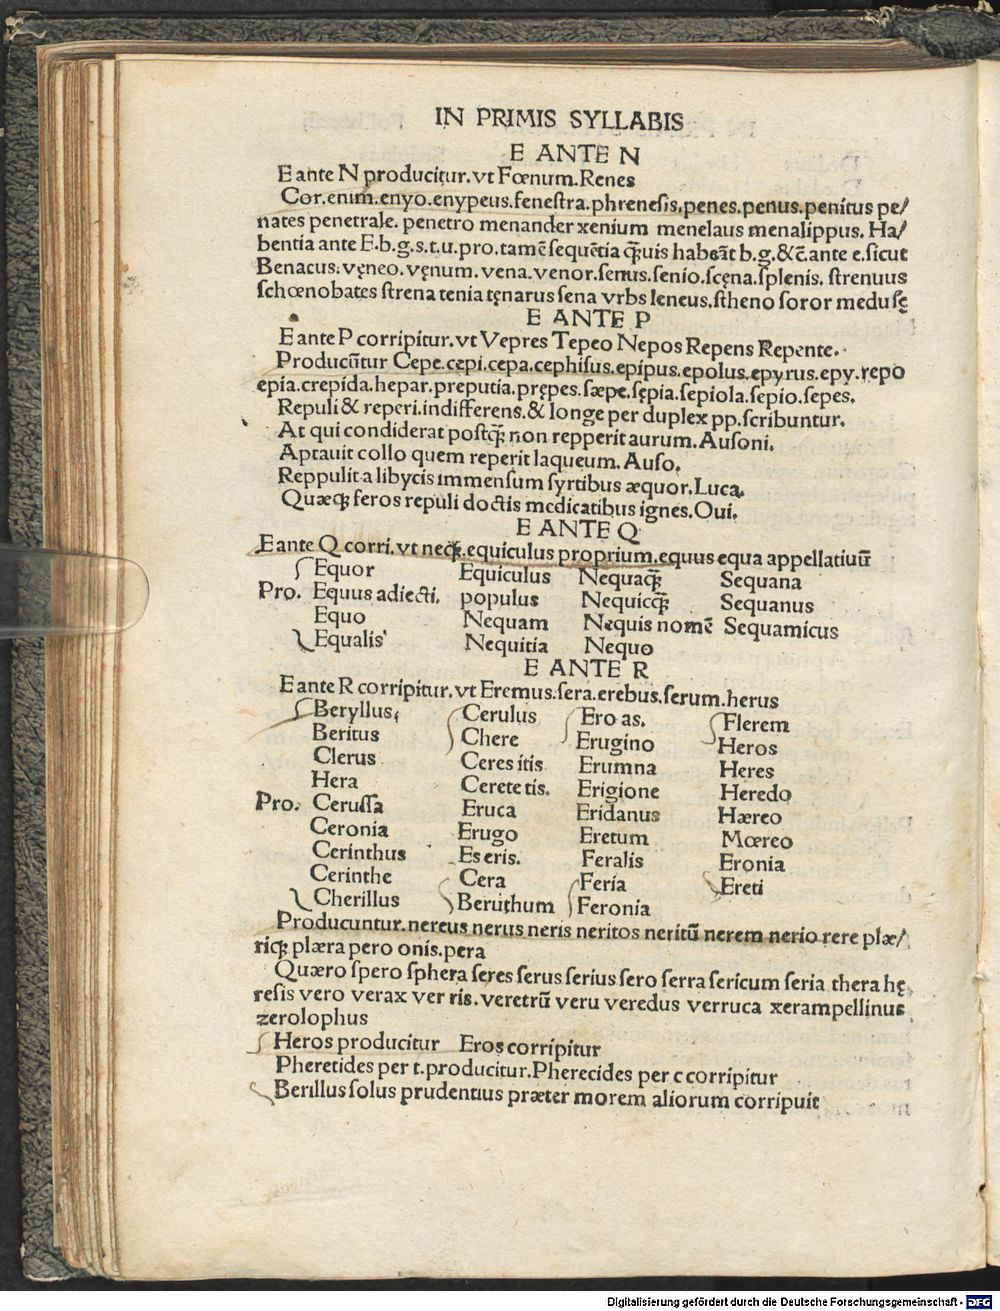 IN PRIMIS SYLLABIS
E ANTE N
E ante N producitur.vt Fœnum.Renes
Cor.enim.enyo.enypeus.feneſtra.phreneſis.penes.penus.penitus pe/
nates penetrale.penetro menander xenium menelaus menalippus.Ha/
bentia ante E.b.g.s.t.u.pro.tamē ſequētia q̄uis habeāt b.g.&c̄.ante e.ſicut
Benacus.vęneo.vęnum.vena.venor.ſenus.ſenio.ſcęna.ſplenis.ſtrenuus
ſchœnobates ſtrena tenia tęnarus ſena vrbs leneus.ſtheno ſoror meduſę
E ANTE P
E ante P corripitur.vt Vepres Tepeo Nepos Repens Repente.
Producūtur Cepe.cępi.cepa.cephiſus.epipus.epolus.epyrus.epy.repo
epia.crepida.hepar.preputia.prępes.ſæpe.ſępia.ſepiola.ſepio.ſepes.
Repuli & reperi.indifferens.& longe per duplex pp.ſcribuntur.
At qui condiderat poſtq̄ non repperit aurum.Auſoni.
Aptauit collo quem reperit laqueum.Auſo.
Reppulit a libycis immenſum ſyrtibus æquor.Luca.
Quæq; feros repuli doctis medicatibus ignes.Oui.
E ANTE Q
E ante Q corri.vt neq;.equiculus proprium.equus equa appellatiuū
Equor Equiculus Nequaq̄ Sequana
Pro. Equus adiecti. populus Nequicq̄ Sequanus
Equo Nequam Nequis nomē Sequamicus
Equalis Nequitia Nequo
E ANTE R
E ante R corripitur.vt Eremus.ſera.erebus.ſerum.herus
Beryllus. Cerulus Ero as. Flerem
Beritus Chere Erugino Heros
Clerus Ceres itis Erumna Heres
Hera Cerete tis. Erigione Heredo
Pro. Ceruſſa Eruca Eridanus Hæreo
Ceronia Erugo Eretum Mœreo
Cerinthus Es eris. Feralis Eronia
Cerinthe Cera Feria Ereti
Cherillus Beruthum Feronia
Producuntur.nereus nerus neris neritos neritū nerem nerio rere plæ/
riq; plæra pero onis.pera
Quæro ſpero ſphera ſeres ſerus ſerius ſero ſerra ſericum ſeria thera hę
reſis vero verax ver ris.veretrū veru veredus verruca xerampellinus
zerolophus
Heros producitur Eros corripitur
Pheretides per t.producitur.Pherecides per c corripitur
Berillus ſolus prudentius præter morem aliorum corripuit
Digitalisierung gefördert durch die Deutsche Forschungsgemeinschaft - DFG